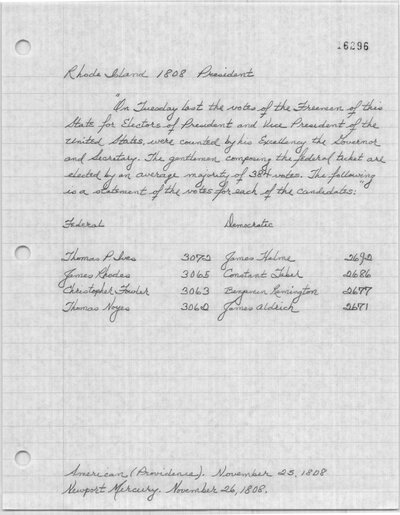 16296
Rhode Island 1808 President
"On Tuesday last the votes of the Freemen of this
State for Electors of President and Vice President of the
United States, were counted by his Excellency the Governor
and Secretary. The gentlemen composing the federal ticket are
elected by an average majority of 384 votes. The following
is a statement of the votes for each of the candidates:"
Federal Democratic
Thomas P. Ives 3072 James Helme 2692
James Rhodes 3065 Constant Taber 2686
Christopher Fowler 3063 Benjamin Remington 2677
Thomas Noyes 3060 James Aldrich 2671
American (Providence). November 25, 1808
Newport Mercury. November 26, 1808.